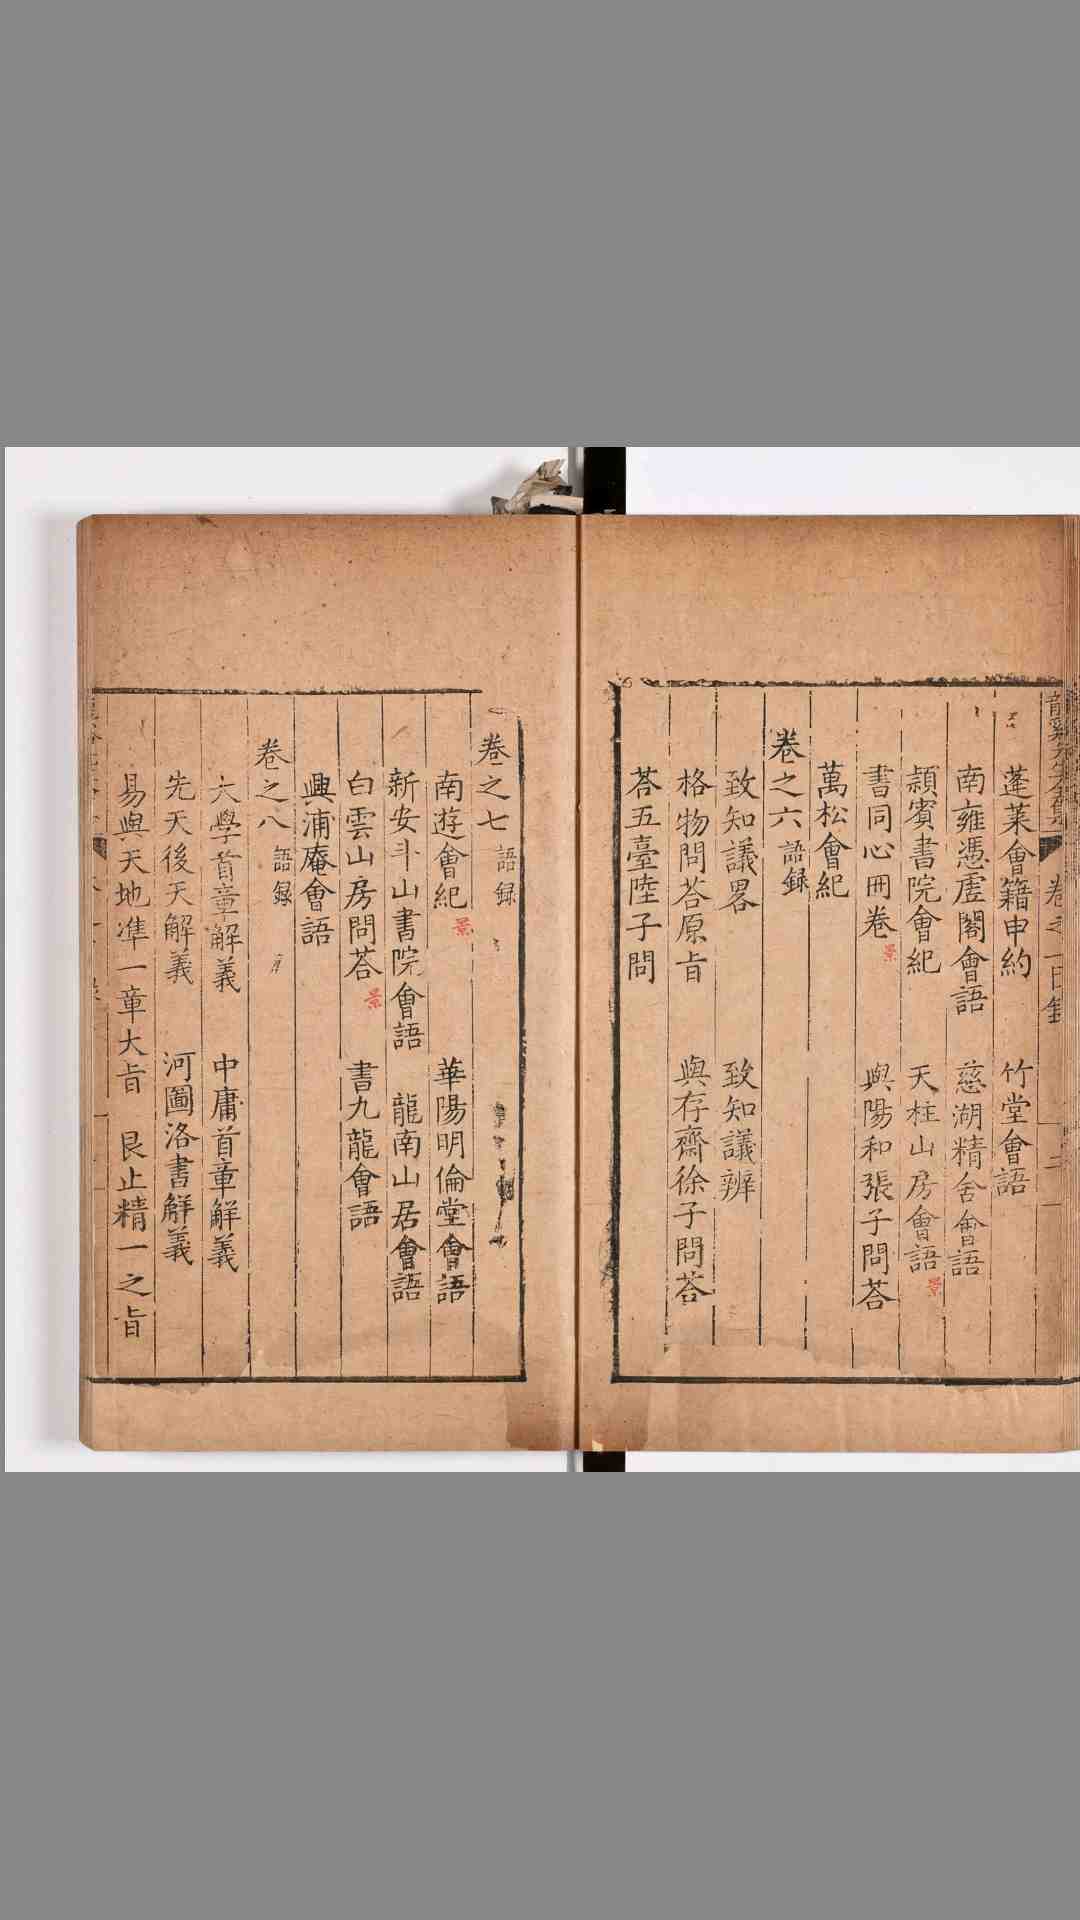 蓬莱會籍申約　竹堂會語
南雍憑虗閣會語　慈湖精舍會語
頴賓書院會紀　天柱山房會語 景
書同心冊卷 景　與陽和張子問荅
萬松會紀
卷之六 語録
致知議畧　致知議辨
格物問荅原㫖　與存齋徐子問荅
荅五臺陸子問
卷之七 語録
南遊會紀 景　華陽明倫堂會語
新安斗山書院會語　龍南山居會語
白雲山房問荅 景　書九龍會語
興浦庵會語
卷之八 語録
大學首章解義　中庸首章解義
先天後天解義　河圖洛書解義
易與天地準一章大㫖　艮止精一之㫖